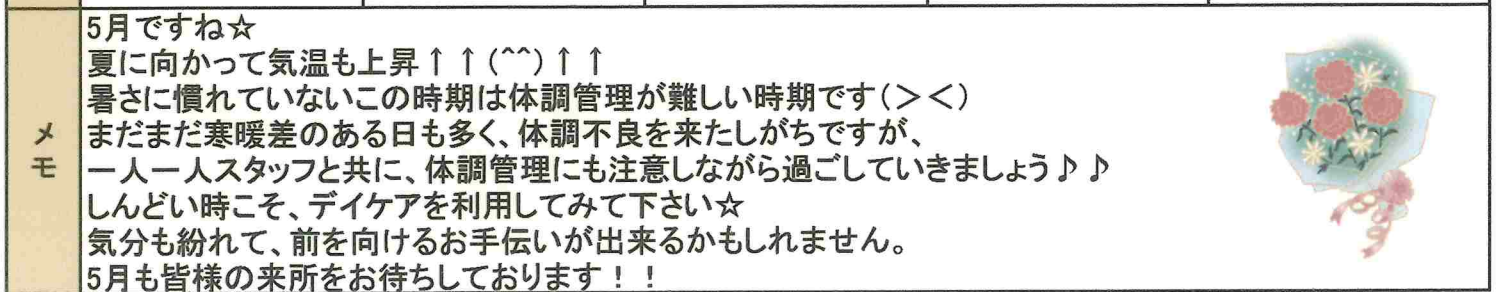 メモ
5月ですね☆
夏に向かって気温も上昇↑↑(^^)↑↑
暑さに慣れていないこの時期は体調管理が難しい時期です(＞＜)
まだまだ寒暖差のある日も多く、体調不良を来たしがちですが、
一人一人スタッフと共に、体調管理にも注意しながら過ごしていきましょう♪♪
しんどい時こそ、デイケアを利用してみて下さい☆
気分も紛れて、前を向けるお手伝いが出来るかもしれません。
5月も皆様の来所をお待ちしております！！